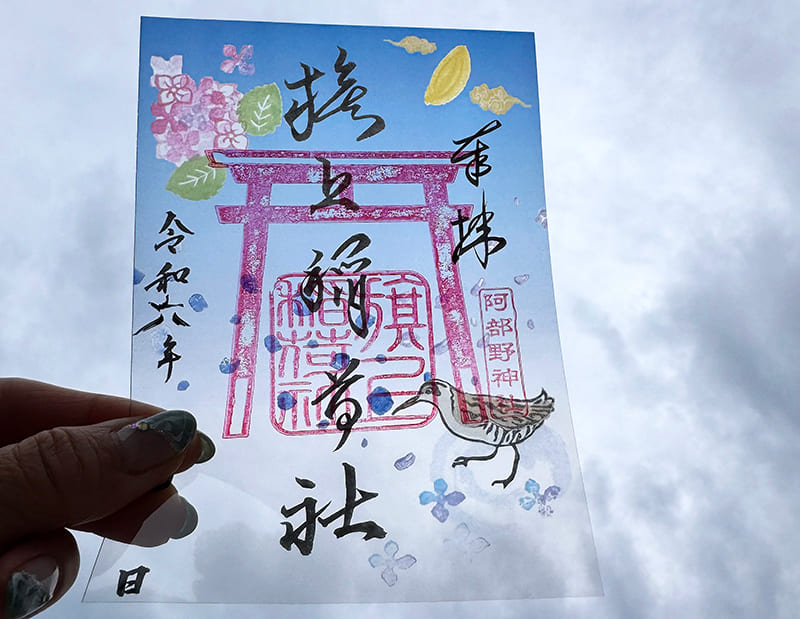 奉拝
阿部野神社
旗上稲荷社
旗上
稲荷社
令和六年
日